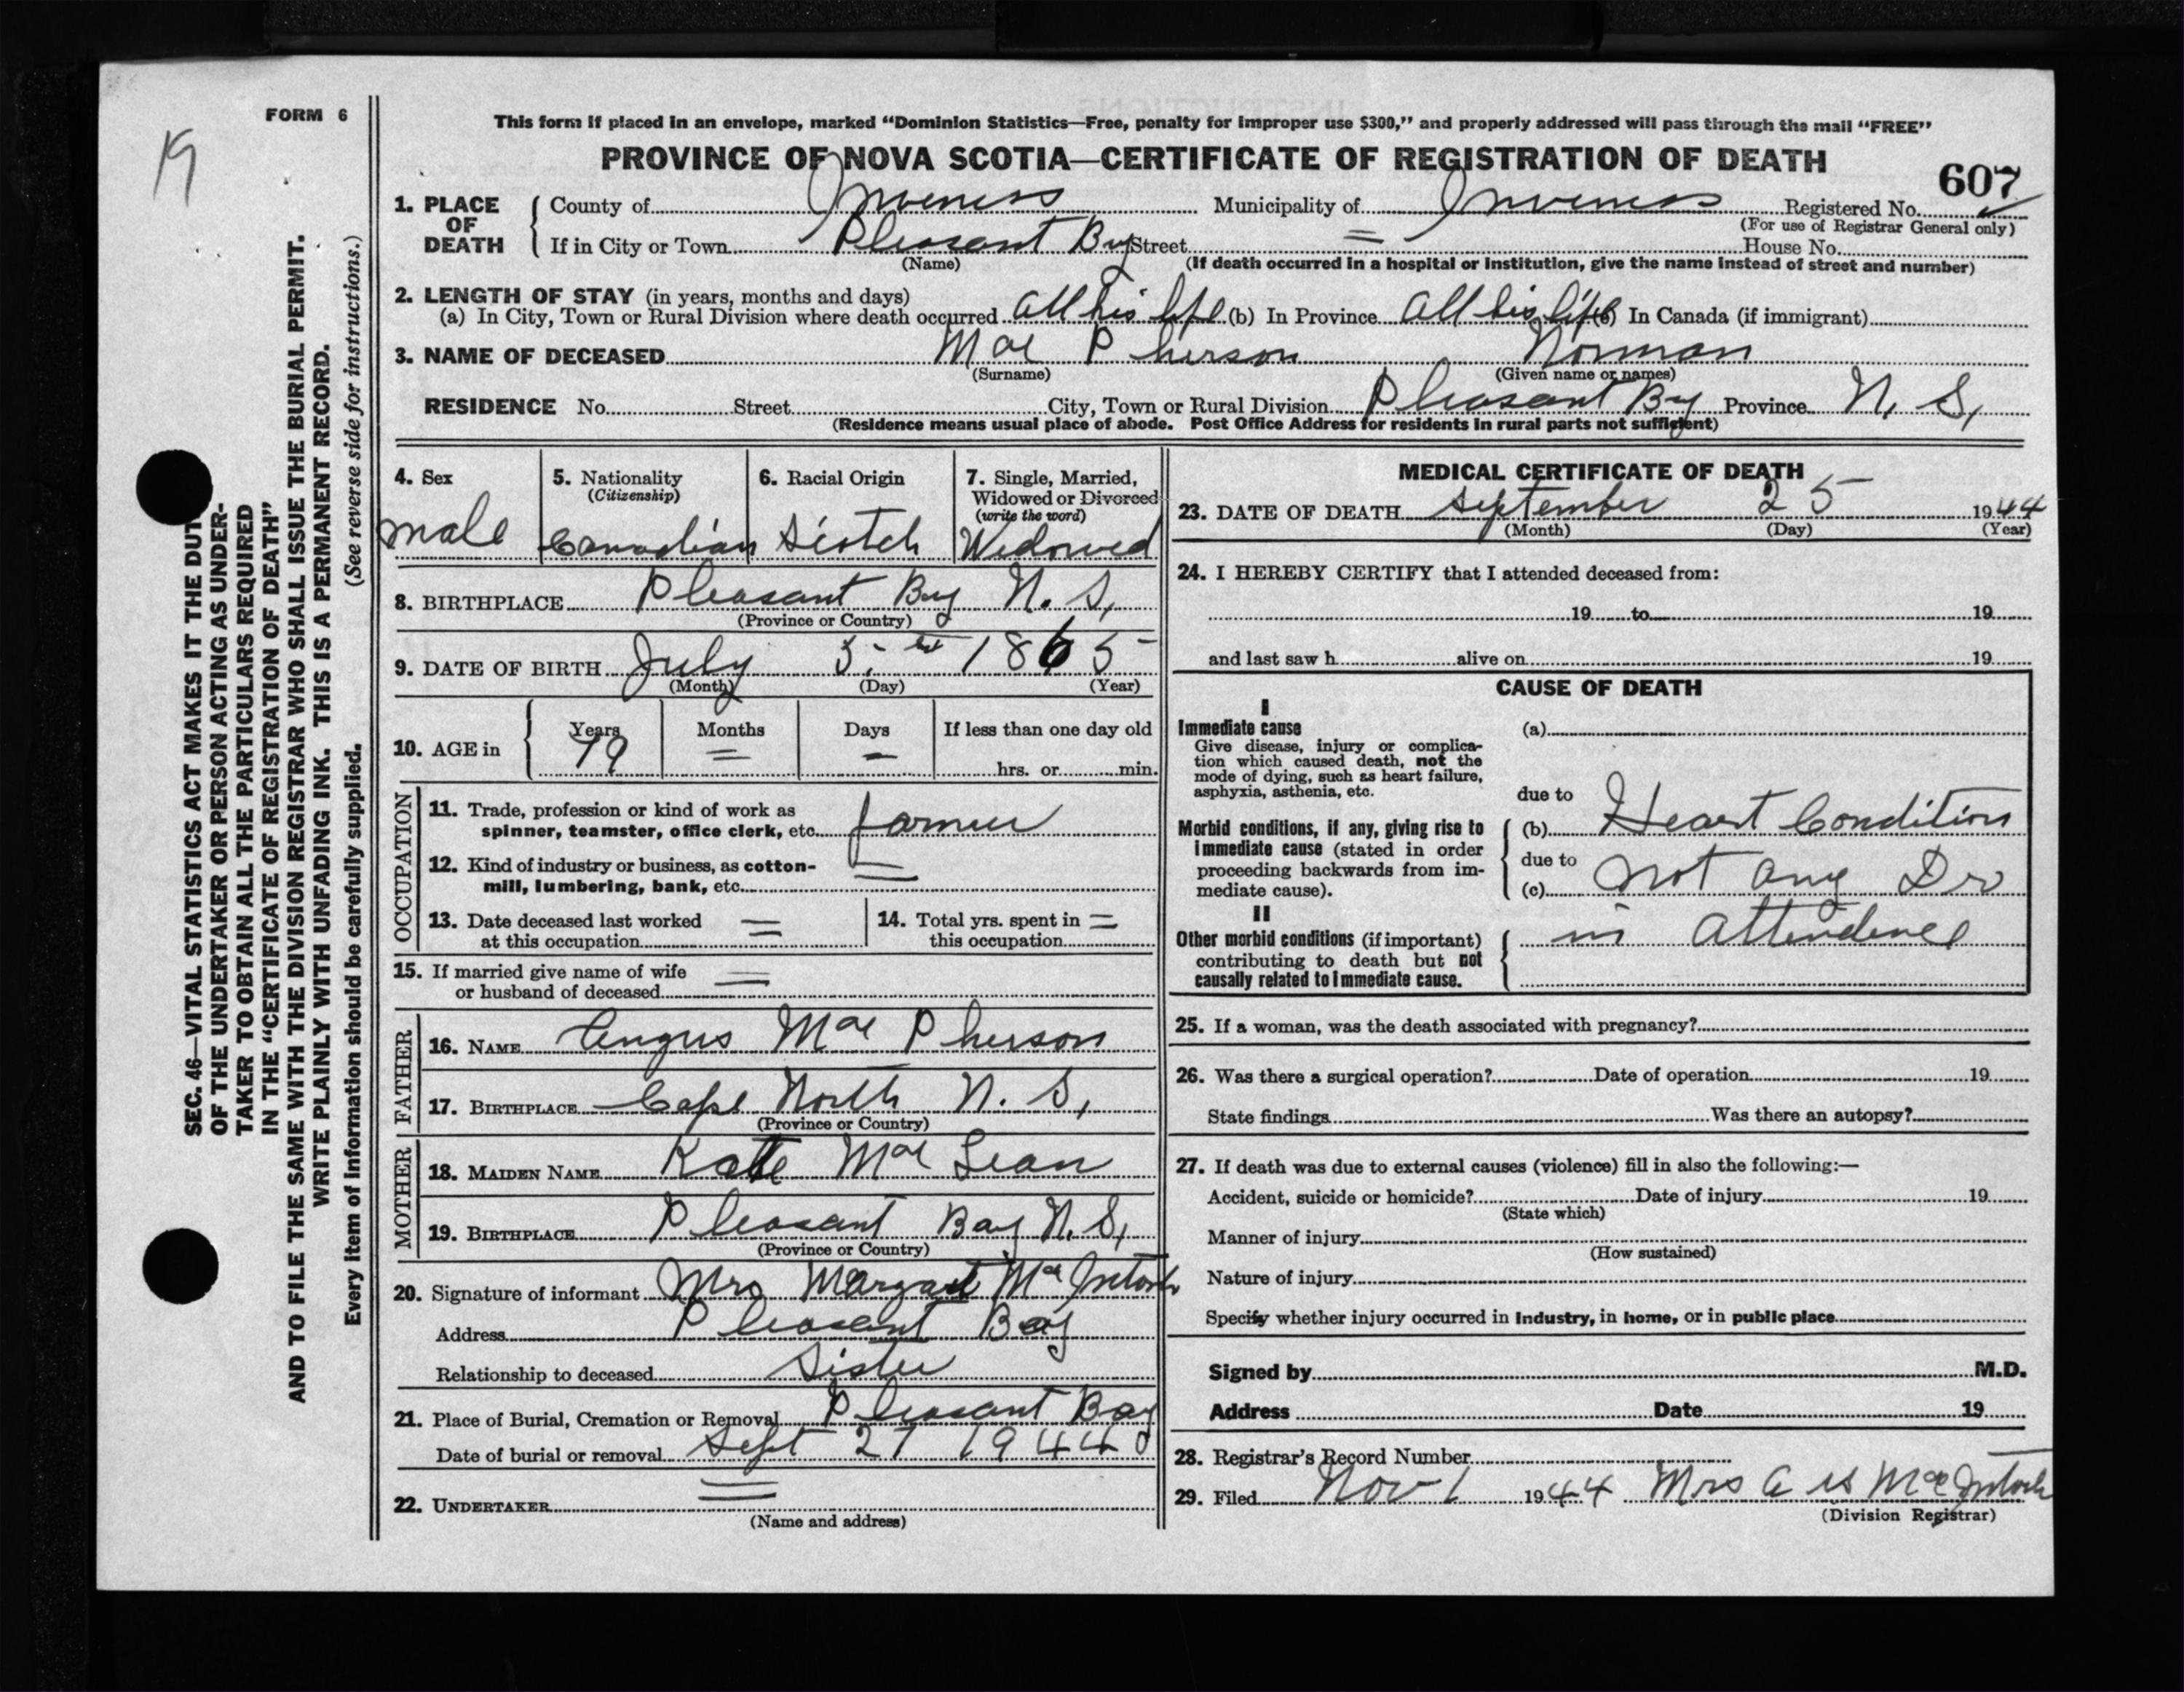 FORM 6
19
This form if placed in an envelope, marked "Dominion Statistics—Free, penalty for improper use $300," and properly addressed will pass through the mail "FREE"
PROVINCE OF NOVA SCOTIA—CERTIFICATE OF REGISTRATION OF DEATH
607
1. PLACE OF DEATH
County of Inverness Municipality of Inverness Registered No.
(For use of Registrar General only)
If in City or Town Pleasant Bay Street = House No.
(Name) (If death occurred in a hospital or institution, give the name instead of street and number)
2. LENGTH OF STAY (in years, months and days)
(a) In City, Town or Rural Division where death occurred all his life (b) In Province all his life (c) In Canada (if immigrant)
3. NAME OF DECEASED Mac Pherson Norman
(Surname) (Given name or names)
RESIDENCE No. Street City, Town or Rural Division Pleasant Bay Province N. S.
(Residence means usual place of abode. Post Office Address for residents in rural parts not sufficient)
4. Sex
male
5. Nationality
(Citizenship)
Canadian
6. Racial Origin
Scotch
7. Single, Married,
Widowed or Divorced
(write the word)
Widowed
8. BIRTHPLACE Pleasant Bay N. S.
(Province or Country)
9. DATE OF BIRTH July 5 1865
(Month) (Day) (Year)
10. AGE in
Years Months Days If less than one day old
79 = = hrs. or min.
OCCUPATION
11. Trade, profession or kind of work as
spinner, teamster, office clerk, etc. farmer
12. Kind of industry or business, as cotton-
mill, lumbering, bank, etc. =
13. Date deceased last worked
at this occupation =
14. Total yrs. spent in
this occupation =
15. If married give name of wife
or husband of deceased =
FATHER
16. NAME Angus Mac Pherson
17. BIRTHPLACE Cape North N. S.
(Province or Country)
MOTHER
18. MAIDEN NAME Kate Mac Lean
19. BIRTHPLACE Pleasant Bay N. S.
(Province or Country)
20. Signature of informant Mrs Margaret Mac Intosh
Address Pleasant Bay
Relationship to deceased Sister
21. Place of Burial, Cremation or Removal Pleasant Bay
Date of burial or removal Sept 27 1944
22. UNDERTAKER =
(Name and address)
MEDICAL CERTIFICATE OF DEATH
23. DATE OF DEATH September 25 1944
(Month) (Day) (Year)
24. I HEREBY CERTIFY that I attended deceased from:
19 to 19
and last saw h alive on 19
CAUSE OF DEATH
I
Immediate cause
Give disease, injury or complica-
tion which caused death, not the
mode of dying, such as heart failure,
asphyxia, asthenia, etc.
(a)
due to
Morbid conditions, if any, giving rise to
immediate cause (stated in order
proceeding backwards from im-
mediate cause).
(b) Heart Condition
due to
(c) not any Dr
II
Other morbid conditions (if important)
contributing to death but not
causally related to immediate cause.
in attendence
25. If a woman, was the death associated with pregnancy?
26. Was there a surgical operation? Date of operation 19
State findings Was there an autopsy?
27. If death was due to external causes (violence) fill in also the following:—
Accident, suicide or homicide? Date of injury 19
(State which)
Manner of injury
(How sustained)
Nature of injury
Specify whether injury occurred in industry, in home, or in public place
Signed by M.D.
Address Date 19
28. Registrar's Record Number
29. Filed Nov 1 1944 Mrs A Mac Intosh
(Division Registrar)
SEC. 46—VITAL STATISTICS ACT MAKES IT THE DUTY
OF THE UNDERTAKER OR PERSON ACTING AS UNDER-
TAKER TO OBTAIN ALL THE PARTICULARS REQUIRED
IN THE "CERTIFICATE OF REGISTRATION OF DEATH"
AND TO FILE THE SAME WITH THE DIVISION REGISTRAR WHO SHALL ISSUE THE BURIAL PERMIT.
WRITE PLAINLY WITH UNFADING INK. THIS IS A PERMANENT RECORD.
Every item of information should be carefully supplied. (See reverse side for instructions.)